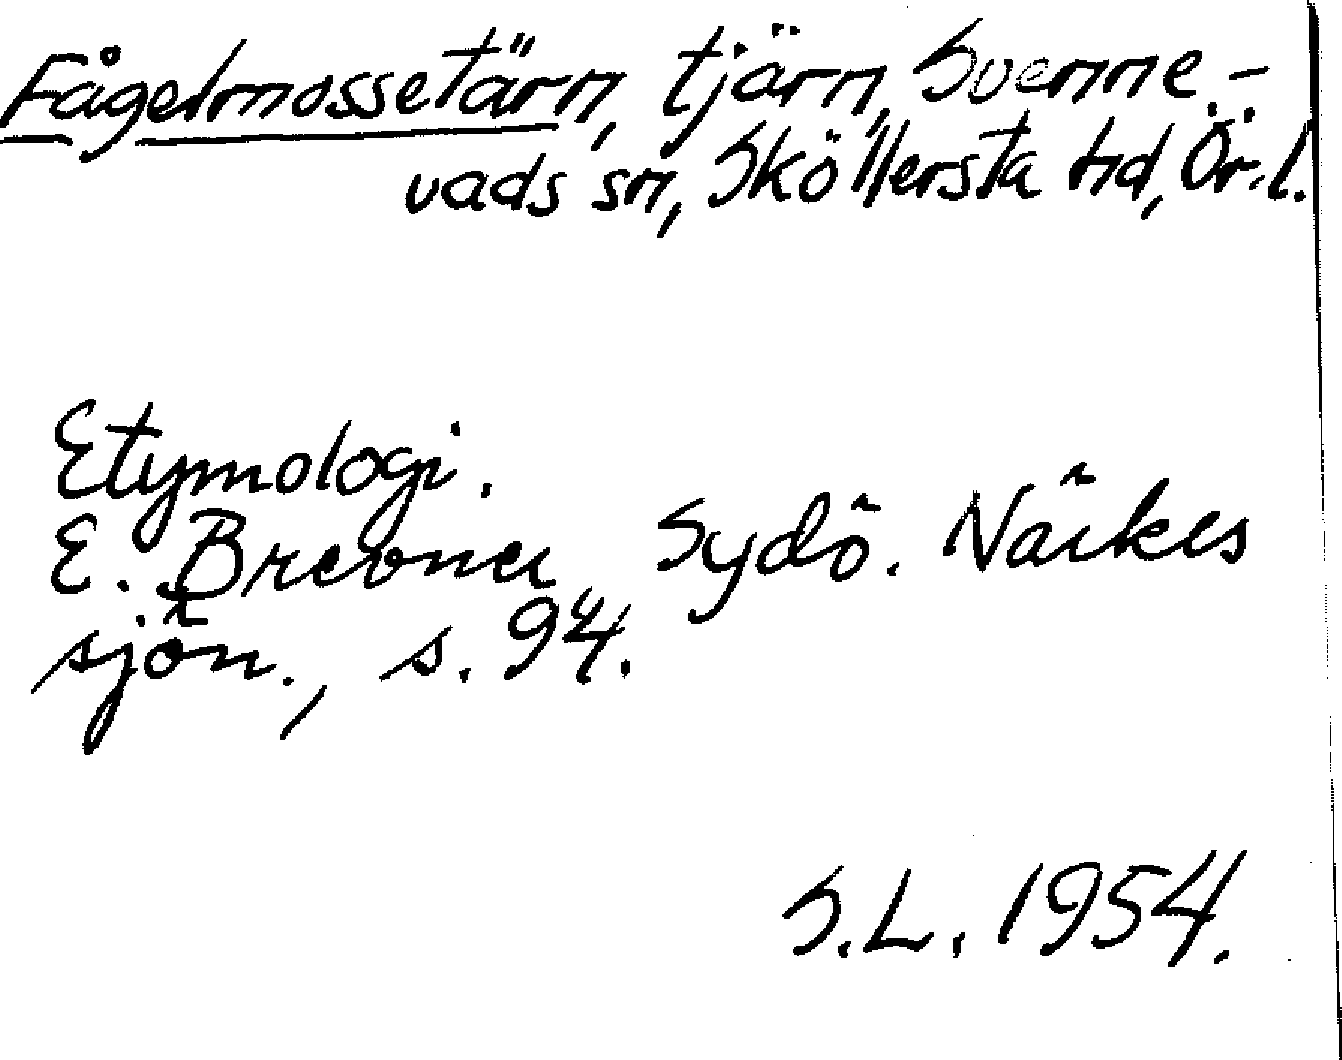 Fågelmossetärn, tjärn, Svenne-
vads sn, Sköllersta hd, Ör. l.
Etymologi.
E. Brevner, Sydö. Närkes
sjön., s. 94.
S.L. 1954.